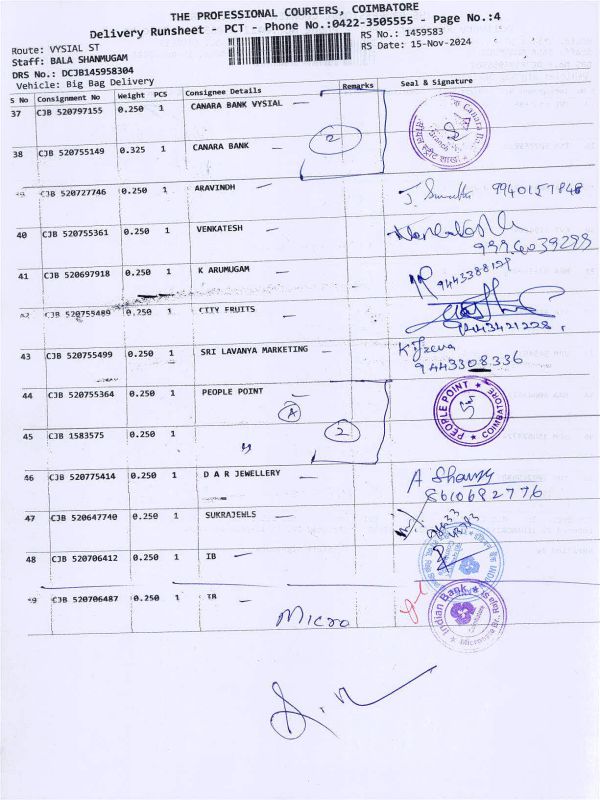 THE PROFESSIONAL COURIERS, COIMBATORE
Delivery Runsheet - PCT - Phone No.:0422-3505555 - Page No.:4
Route: VYSIAL ST
RS No.: 1459583
Staff: BALA SHANMUGAM
RS Date: 15-Nov-2024
DRS No.: DCJB145958304
Vehicle: Big Bag Delivery
S No Consignment No Weight PCS Consignee Details Remarks Seal & Signature
37 CJB 520797155 0.250 1 CANARA BANK VYSIAL
2
38 CJB 520755149 0.325 1 CANARA BANK
39 CJB 520727746 0.250 1 ARAVINDH 9940157848
40 CJB 520755361 0.250 1 VENKATESH
41 CJB 520697918 0.250 1 K ARUMUGAM
42 CJB 520755489 0.250 1 CITY FRUITS 9443421228
43 CJB 520755499 0.250 1 SRI LAVANYA MARKETING
9443308336
44 CJB 520755364 0.250 1 PEOPLE POINT PEOPLE POINT COIMBATORE
A
2
45 CJB 1583575 0.250 1
46 CJB 520775414 0.250 1 D A R JEWELLERY
8610692776
47 CJB 520647740 0.250 1 SUKRAJEWLS
48 CJB 520706412 0.250 1 IB
49 CJB 520706487 0.250 1 IB
Indian Bank
Micro